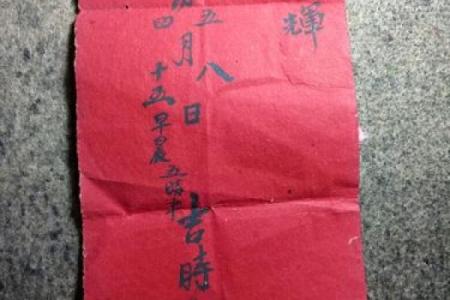 輝
五月八日吉時
四十五早晨五時半